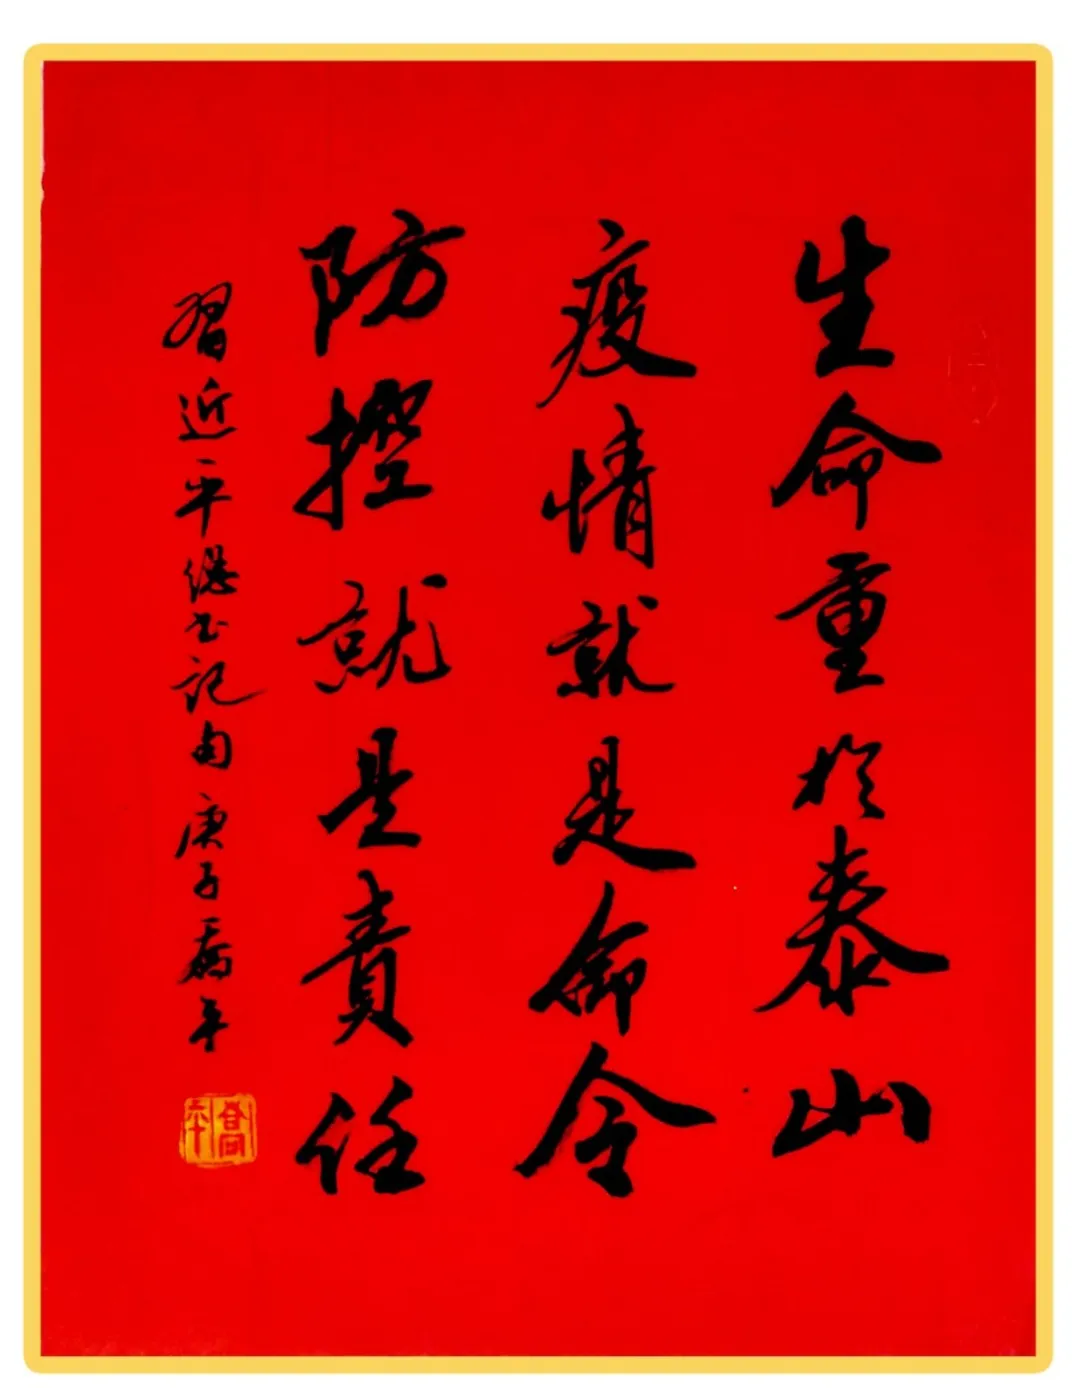 生命重於泰山
疫情就是命令
防控就是責任
習近平總书記句 庚子喬平
喬平